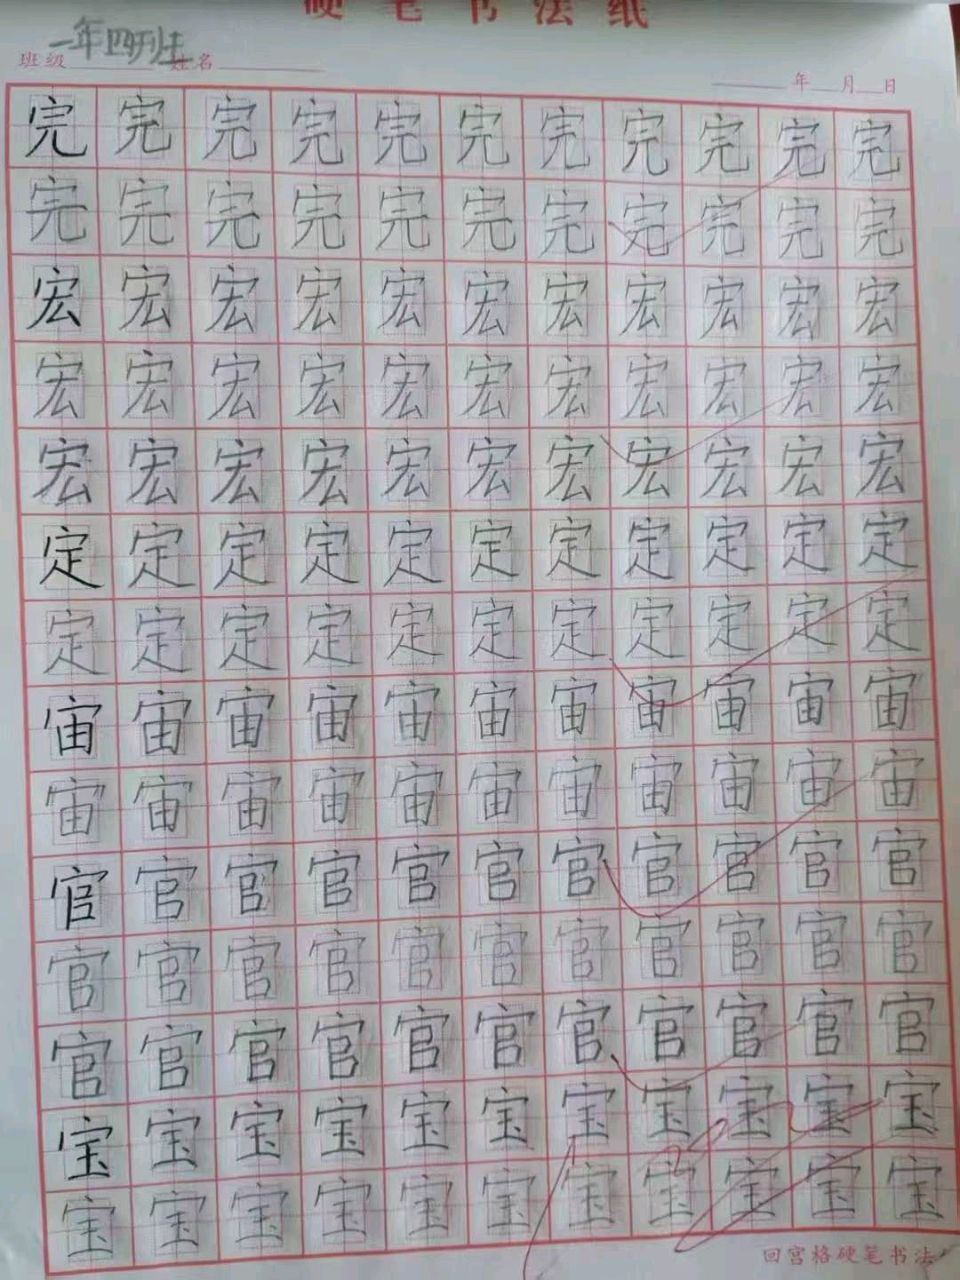 硬笔书法纸
班级 一年四班 姓名
年 月 日
完完完完完完完完完完完
完完完完完完完完完完完
宏宏宏宏宏宏宏宏宏宏宏
宏宏宏宏宏宏宏宏宏宏宏
宏宏宏宏宏宏宏宏宏宏宏
定定定定定定定定定定定
定定定定定定定定定定定
宙宙宙宙宙宙宙宙宙宙宙
宙宙宙宙宙宙宙宙宙宙宙
官官官官官官官官官官官
官官官官官官官官官官官
官官官官官官官官官官官
宝宝宝宝宝宝宝宝宝宝宝
宝宝宝宝宝宝宝宝宝宝宝
回宫格硬笔书法